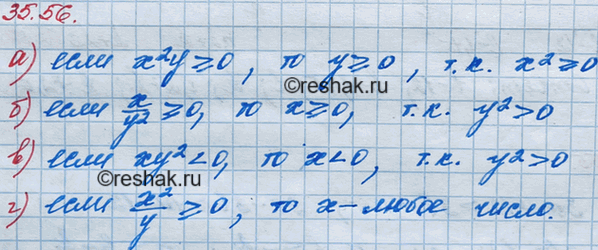 35.56.
а) если x²y ≥ 0, то y ≥ 0, т.к. x² ≥ 0
©reshak.ru
б) если x/y² ≥ 0, то x ≥ 0, т.к. y² > 0
в) если xy² < 0, то x < 0, т.к. y² > 0
©reshak.ru
г) если x²/y ≥ 0, то x – любое число.